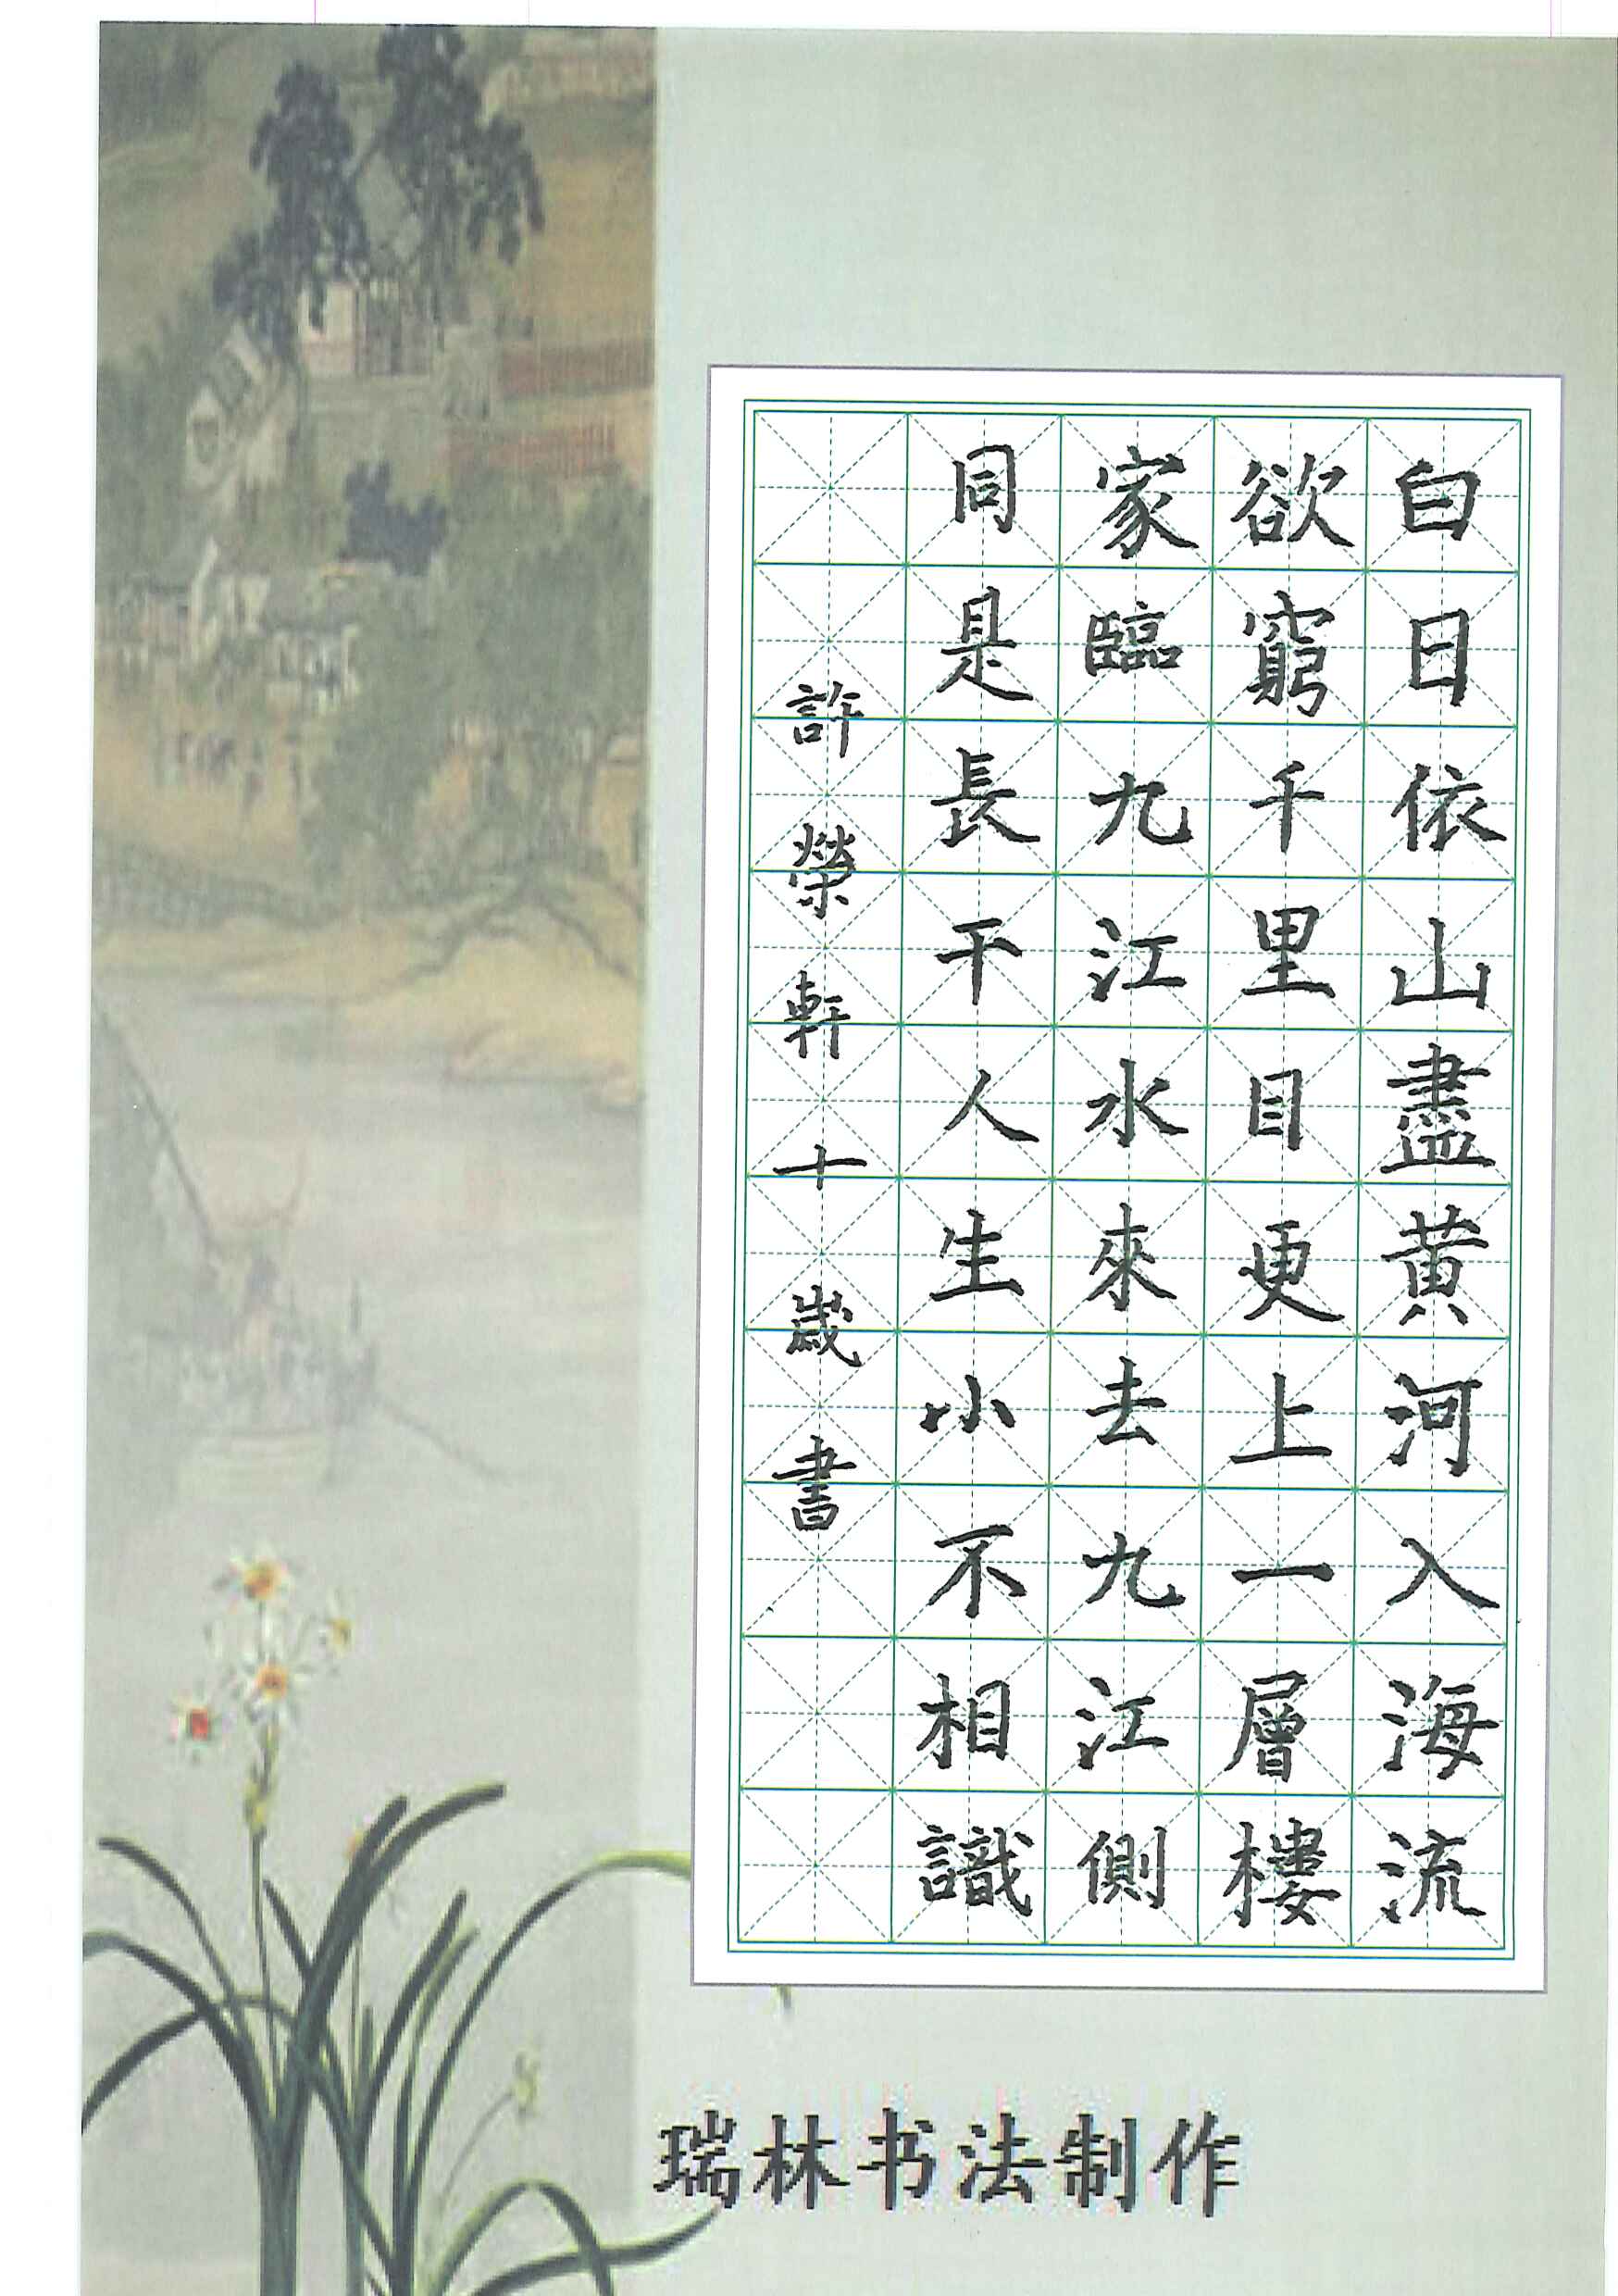 白日依山盡黄河入海流
欲窮千里目更上一層樓
家臨九江水來去九江側
同是長干人生小不相識
許榮軒十歲書
瑞林书法制作